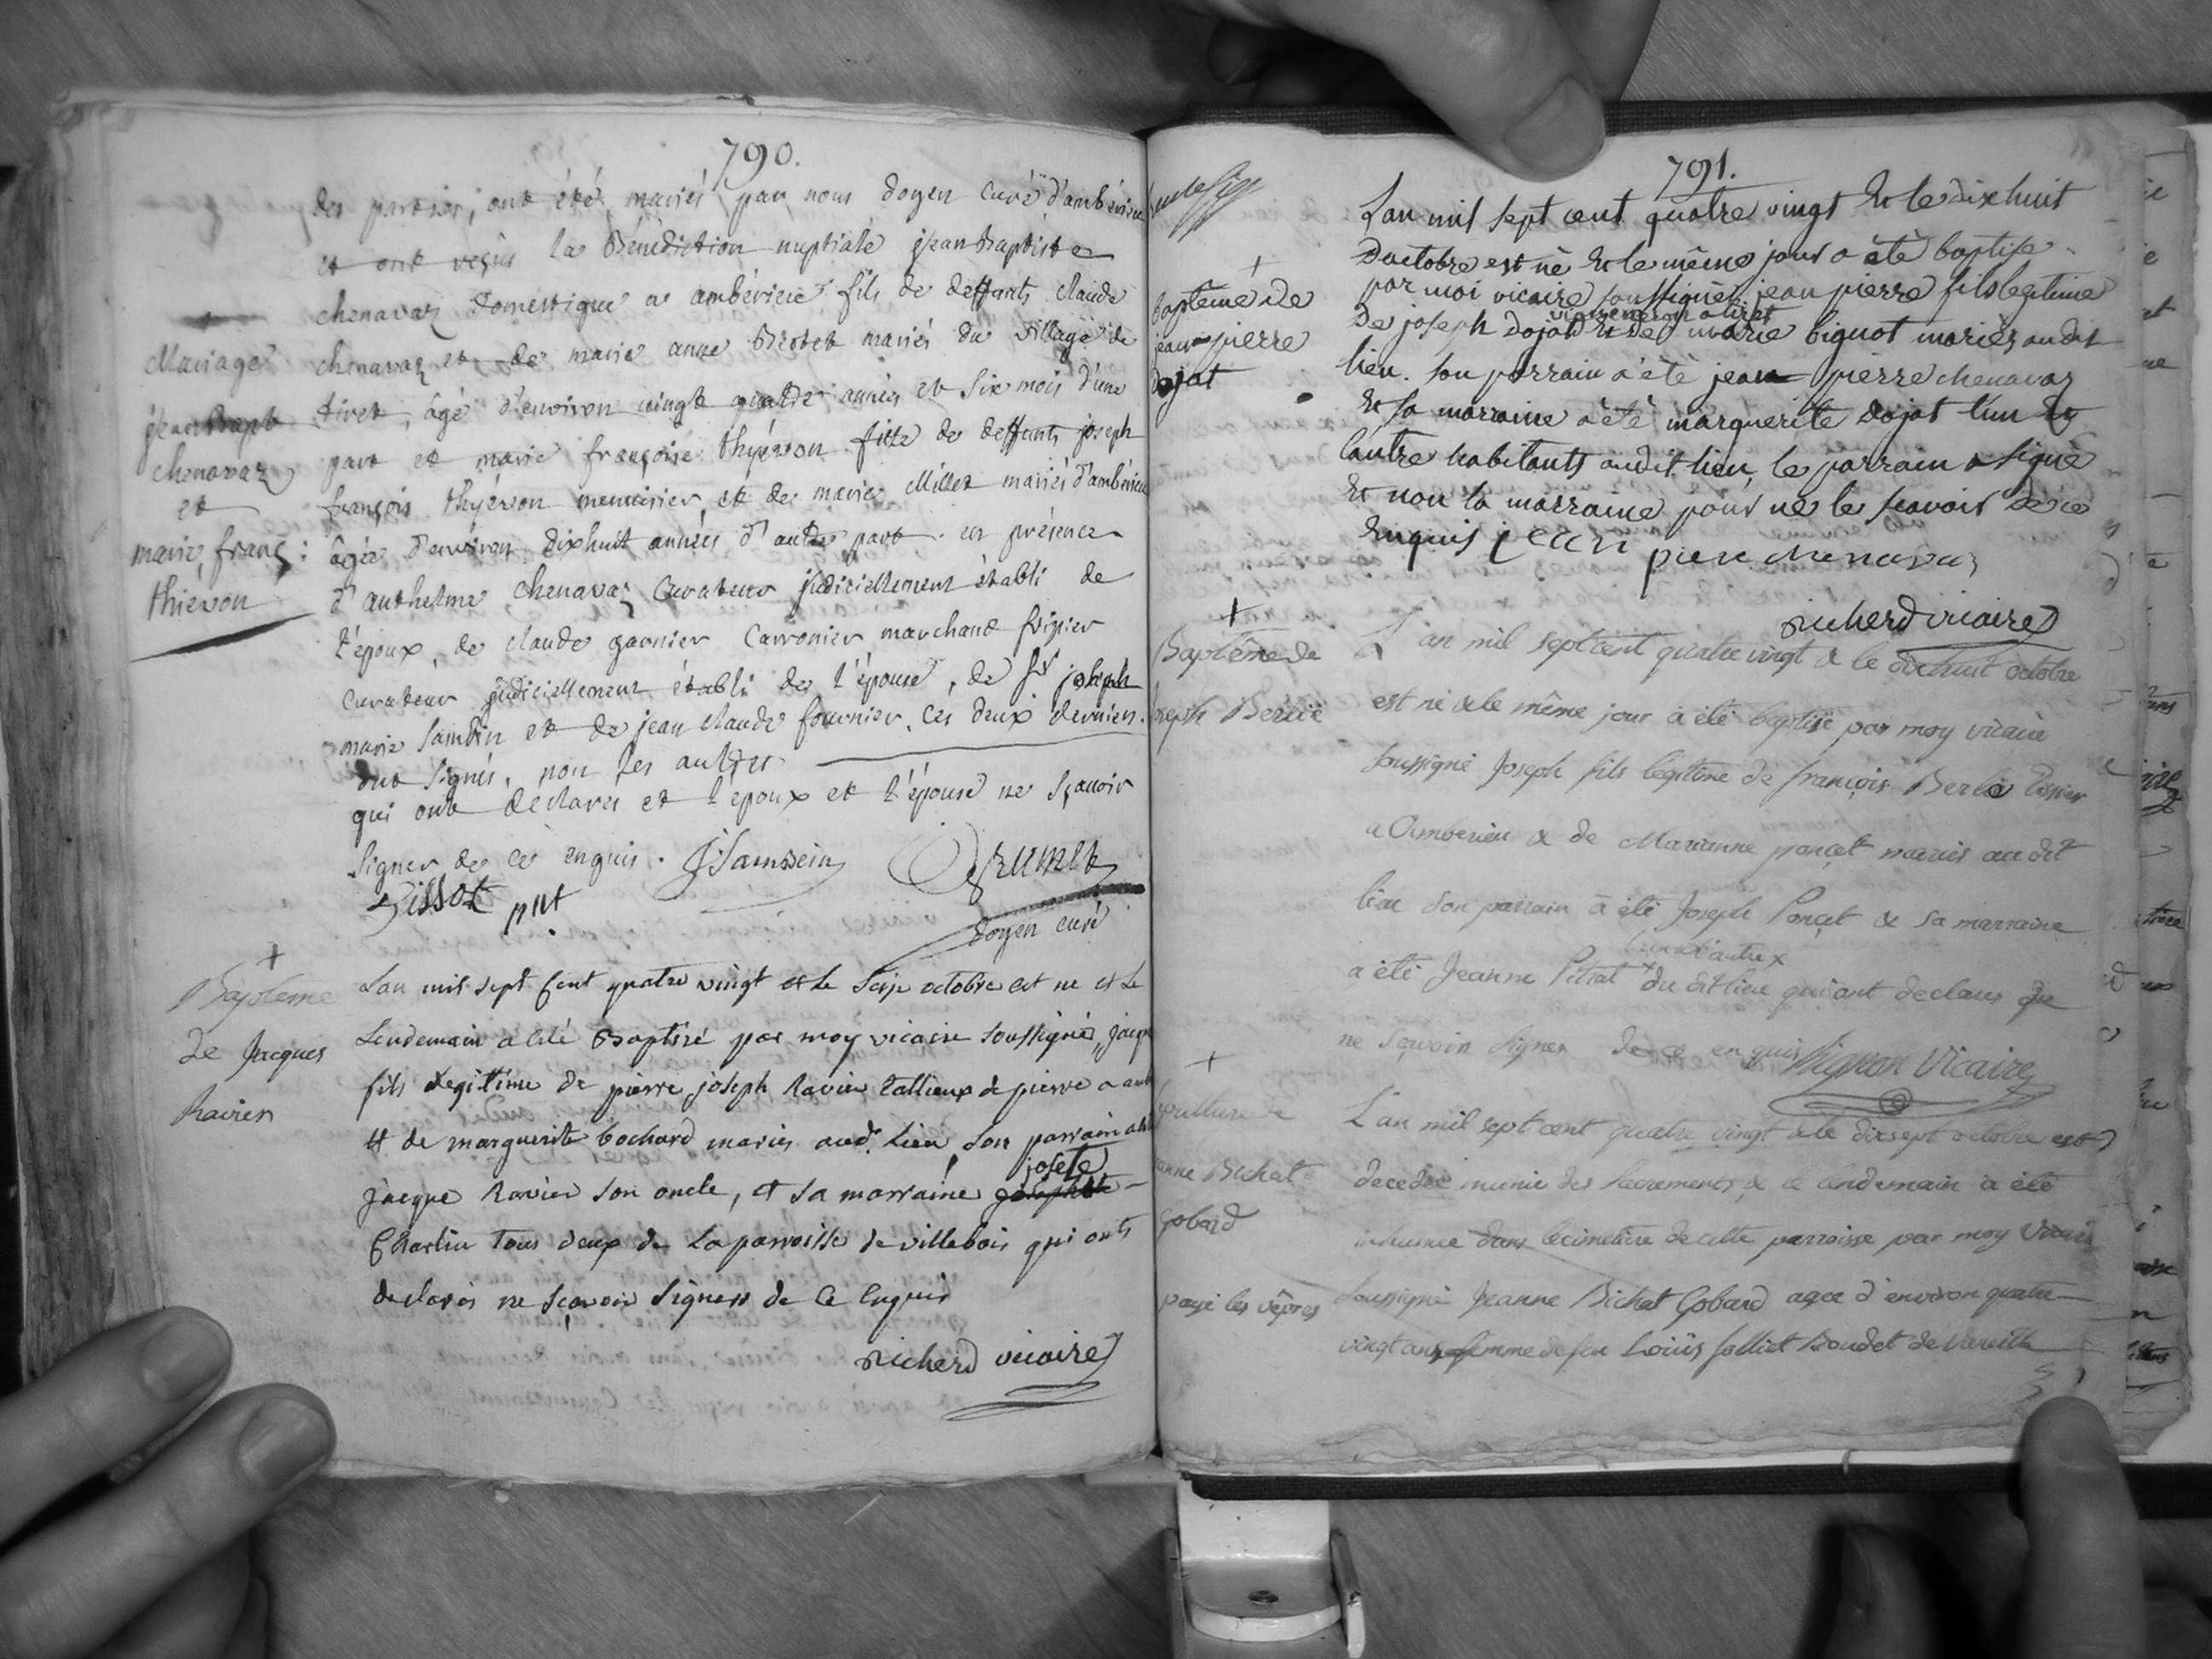 790.
des parties, ont été mariés par nous doyen curé d'ambérieu
et ont reçûs la Bénédiction nuptiale jean Baptiste
chenavaz domestique a ambérieu fils de deffunts claude
chenavaz et de marie anne Brotet mariés du village de
tiret, âgé d'environ vingt quatre années et six mois d'une
part et marie françoise thyévon fille de deffunts joseph
françois thyévon menuisier et de marie Millet mariés d'ambérieu
âgée d'environ dixhuit années d'autre part. en présence
d'anthelme chenavaz Curateur judiciellement établi de
l'époux, de claude garnier Carronier marchand fripier
Curateur judiciellement établi de l'épouse, de sr joseph
marie et de jean claude fournier, ces deux derniers
ont signés, non les autres
qui ont déclarés et l'époux et l'épouse ne sçavoir
signer de ce enquis.
Tissot
doyen curé
Mariage
jean bapt
chenavaz
et
marie franç:
thiévon
+
Baptême
de Jacques
Ravier
Lan mil sept Cent quatre vingt et le Seize octobre est ne et Le
Lendemain a été Baptisé par moy vicaire soussigné, jacque
fils Legitime de pierre joseph Ravier tallieur de pierre a
et de marguerite bochard mariés aud. Lieu, son parrain a été
josete
jacque Ravier son oncle, et sa marraine
Charlin tous deux de La parroisse de villebois qui onts
declarés ne sçavoir signer de Ce Enquis
richerd vicaire
791.
Lan mil sept cent quatre vingt Et le dixhuit
Doctobre est né Et le même jour a été baptise
par moi vicaire soussigné jean pierre fils legitime
De joseph dojat Et de marie biguot mariés audit
lieu. son parrain a été jean pierre chenavaz
Et sa marraine a été marguerite dojat l'un Et
lautre habitants audit lieu, le parrain a signé
Et non la marraine pour ne le scavoir de ce
Enquis jean piere chenavaz
richerd vicaire
+
baptême de
jean pierre
dojat
+
Baptême de
Joseph Berlie
L'an mil sept cent quatre vingt & le dixhuit octobre
est né & le même jour a été baptisé par moy vicaire
soussigné Joseph fils legitime de françois Berlie Tissier
a Amberieu & de Marianne ponçet mariés audit
lieu son parrain a été Joseph Ponçet & sa marraine
l'un & l'autre x
a été Jeanne + du dit lieu qui ont declarés
ne sçavoir signer de ce enquis Mignon Vicaire
+
sepulture de
Jeanne Bichat
Gobard
payé les vêpres
L'an mil sept cent quatre vingt & le dixsept octobre est
decedée munie des sacrements & le lendemain a été
inhumée dans le cimetiere de cette parroisse par moy Vicaire
soussigné Jeanne Bichat Gobard agée d'environ quatre
vingt ans femme de feu Loüis Boudet de Vareille